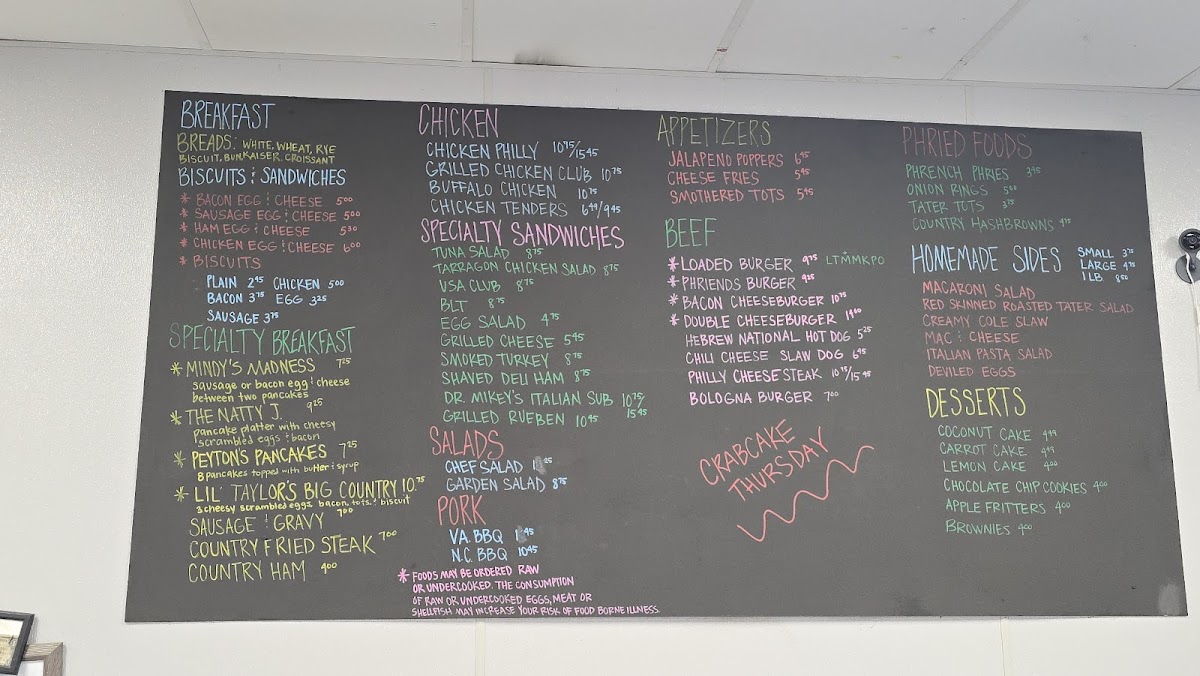 BREAKFAST
BREADS: WHITE, WHEAT, RYE
BISCUIT, BUN, KAISER, CROISSANT
BISCUITS & SANDWICHES
* BACON EGG & CHEESE 5⁰⁰
* SAUSAGE EGG & CHEESE 5⁰⁰
* HAM EGG & CHEESE 5⁵⁰
* CHICKEN EGG & CHEESE 6⁰⁰
* BISCUITS
PLAIN 2⁴⁵ CHICKEN 5⁰⁰
BACON 3⁷⁵ EGG 3²⁵
SAUSAGE 3⁷⁵
SPECIALTY BREAKFAST
* MINDY'S MADNESS 7²⁵
sausage or bacon egg & cheese
between two pancakes
* THE NATTY J. 9²⁵
pancake platter with cheesy
scrambled eggs & bacon
* PEYTON'S PANCAKES 7²⁵
8 pancakes topped with butter & syrup
* LIL' TAYLOR'S BIG COUNTRY 10⁷⁵
3 cheesy scrambled eggs, bacon, tots, & biscuit
SAUSAGE & GRAVY 7⁰⁰
COUNTRY FRIED STEAK 7⁰⁰
COUNTRY HAM 4⁰⁰
CHICKEN
CHICKEN PHILLY 10⁷⁵/15⁴⁵
GRILLED CHICKEN CLUB 10⁷⁵
BUFFALO CHICKEN 10⁷⁵
CHICKEN TENDERS 6⁴⁹/9⁴⁵
SPECIALTY SANDWICHES
TUNA SALAD 8⁷⁵
TARRAGON CHICKEN SALAD 8⁷⁵
USA CLUB 8⁷⁵
BLT 8⁷⁵
EGG SALAD 4⁷⁵
GRILLED CHEESE 5⁴⁵
SMOKED TURKEY 8⁷⁵
SHAVED DELI HAM 8⁷⁵
DR. MIKEY'S ITALIAN SUB 10⁷⁵/15⁴⁵
GRILLED RUEBEN 10⁴⁵
SALADS
CHEF SALAD
GARDEN SALAD 8⁷⁵
PORK
VA. BBQ
N.C. BBQ 10⁴⁵
* FOODS MAY BE ORDERED RAW
OR UNDERCOOKED. THE CONSUMPTION
OF RAW OR UNDERCOOKED EGGS, MEAT OR
SHELLFISH MAY INCREASE YOUR RISK OF FOOD BORNE ILLNESS.
APPETIZERS
JALAPENO POPPERS 6⁴⁵
CHEESE FRIES 5⁴⁵
SMOTHERED TOTS 5⁴⁵
BEEF
* LOADED BURGER 9⁷⁵ LTMMKPO
* PHRIENDS BURGER 9²⁵
* BACON CHEESEBURGER 10⁷⁵
* DOUBLE CHEESEBURGER 14⁰⁰
HEBREW NATIONAL HOT DOG 5²⁵
CHILI CHEESE SLAW DOG 6⁴⁵
PHILLY CHEESESTEAK 10⁷⁵/15⁴⁵
BOLOGNA BURGER 7⁰⁰
CRABCAKE
THURSDAY
PHRIED FOODS
PHRENCH PHRIES 3⁴⁵
ONION RINGS 5⁰⁰
TATER TOTS 3⁷⁵
COUNTRY HASHBROWNS 4⁷⁵
HOMEMADE SIDES
SMALL 3⁷⁵
LARGE 4⁷⁵
1 LB 8⁵⁰
MACARONI SALAD
RED SKINNED ROASTED TATER SALAD
CREAMY COLE SLAW
MAC & CHEESE
ITALIAN PASTA SALAD
DEVILED EGGS
DESSERTS
COCONUT CAKE 4⁴⁹
CARROT CAKE 4⁴⁹
LEMON CAKE 4⁰⁰
CHOCOLATE CHIP COOKIES 4⁰⁰
APPLE FRITTERS 4⁰⁰
BROWNIES 4⁰⁰